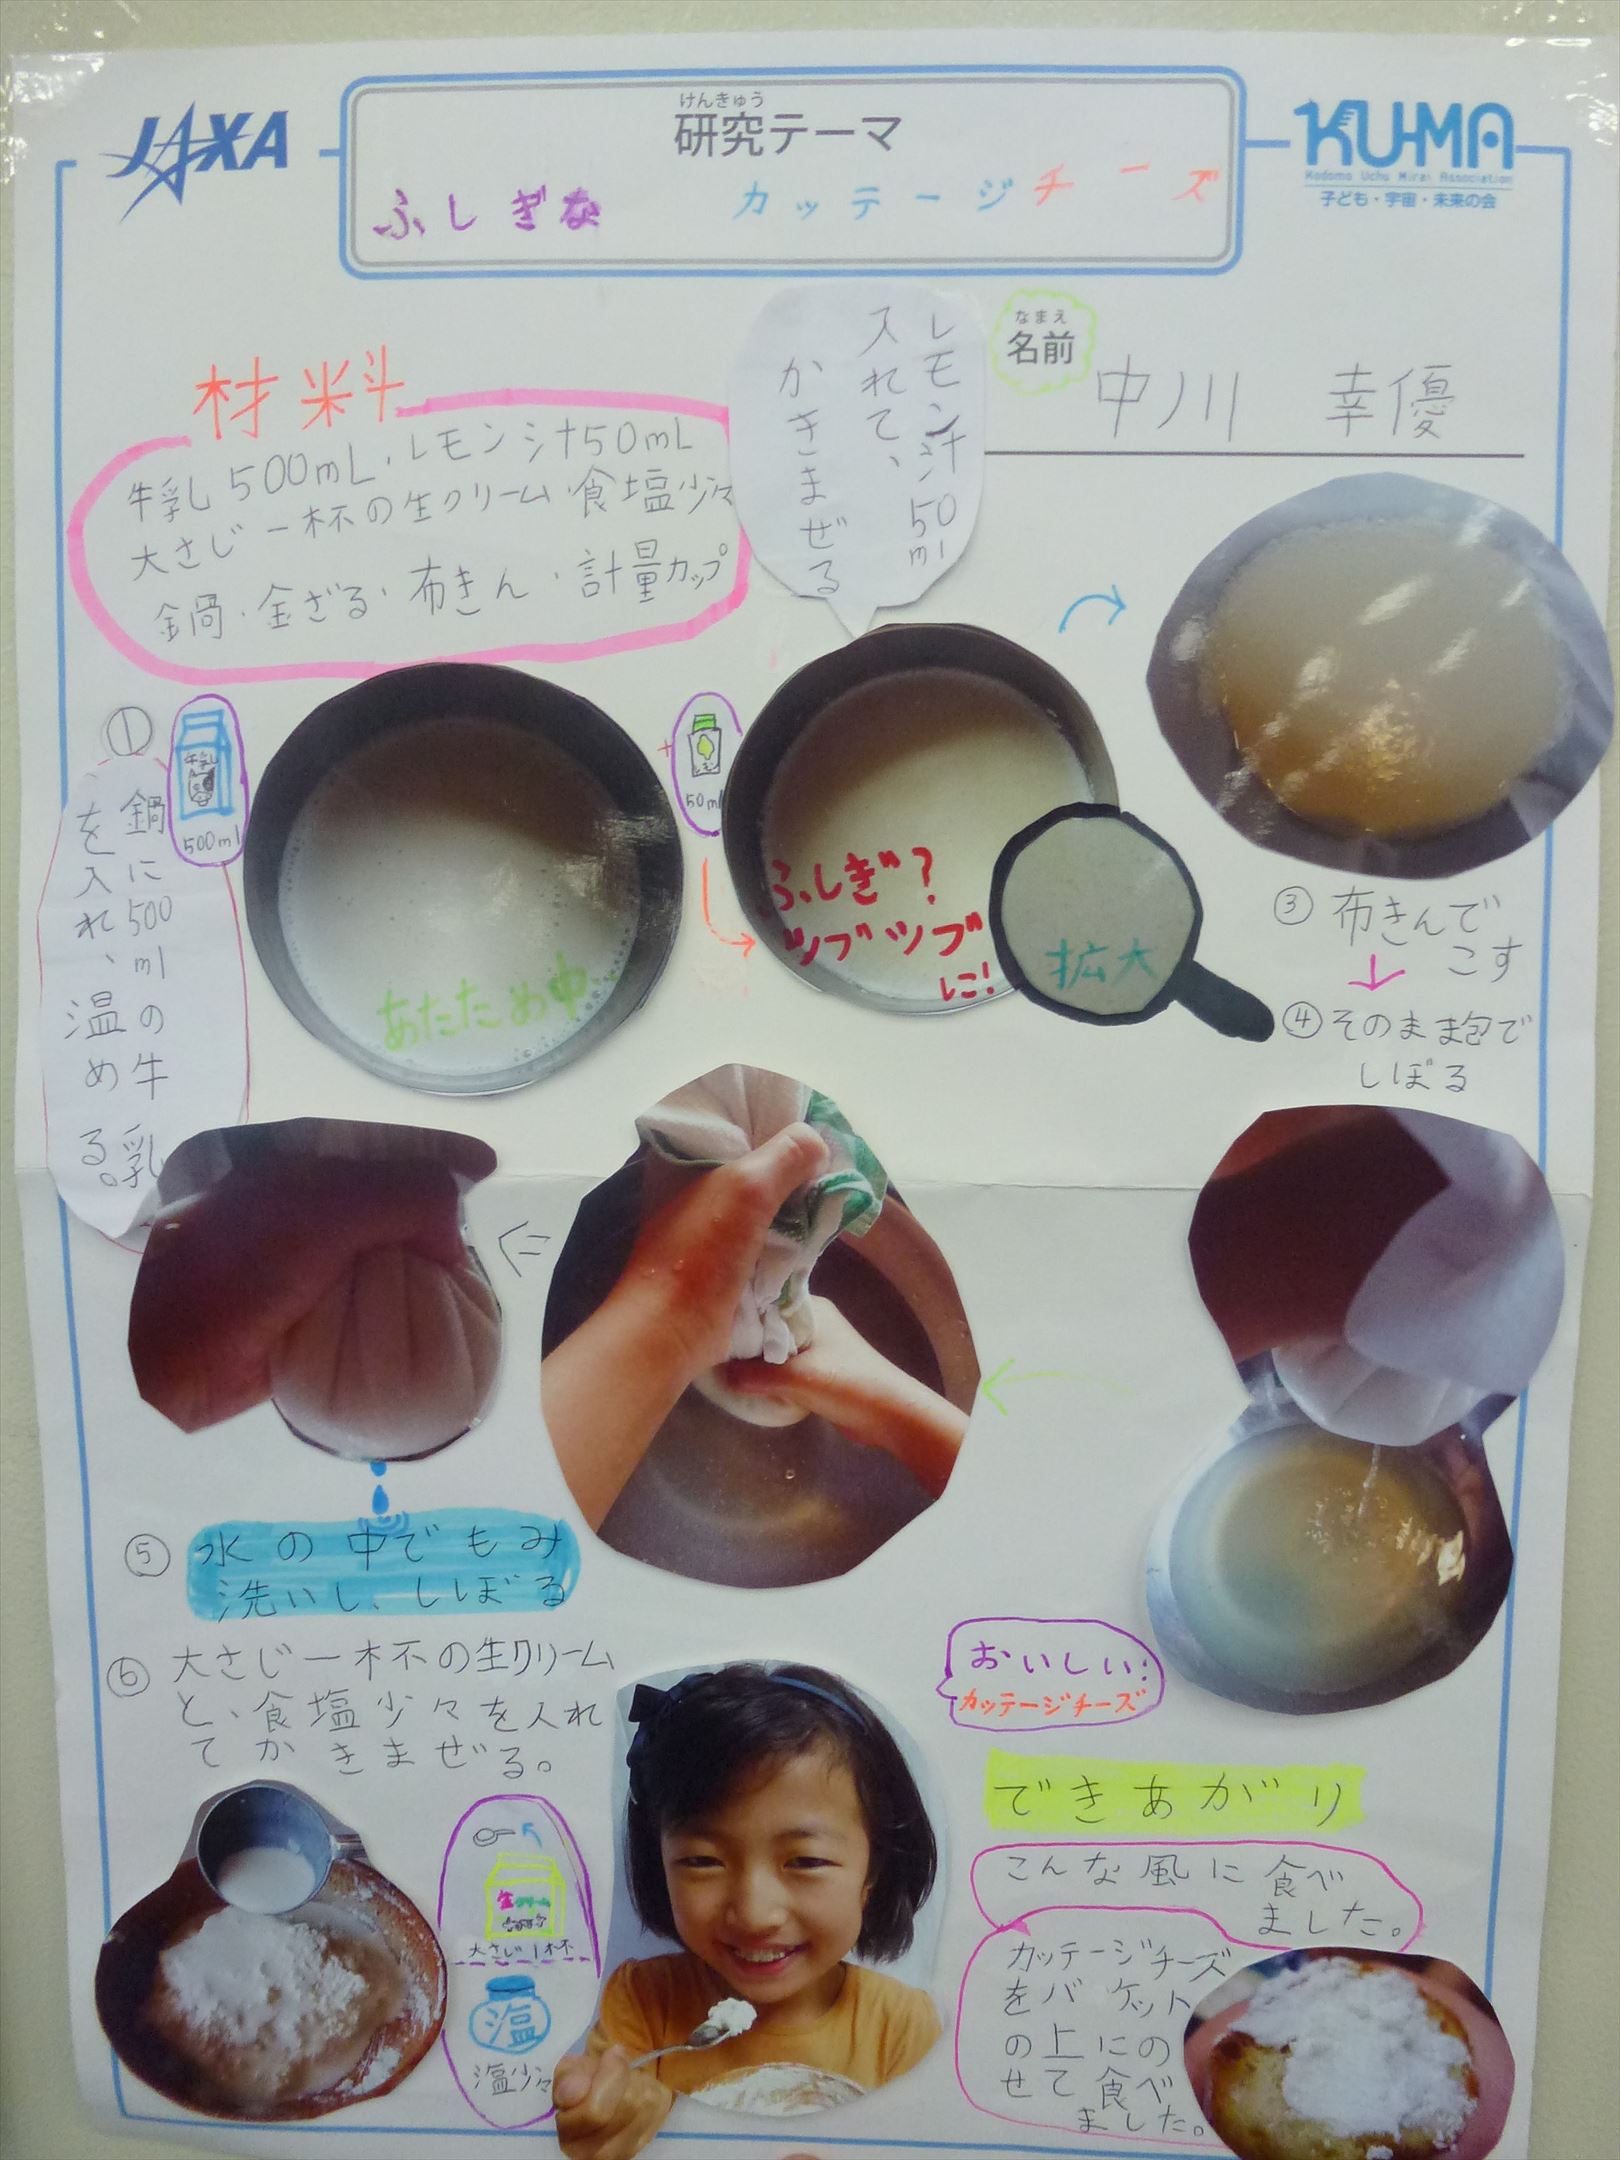 JAXA
けんきゅう
研究テーマ
ふしぎな カッテージチーズ
KU-MA
Kodomo Uchu Mirai Association
子ども・宇宙・未来の会
なまえ
名前
中川 幸優
材料
牛乳500mL・レモン汁50mL
大さじ一杯の生クリーム・食塩少々
鍋・金ざる・布きん・計量カップ
レモン汁50ml
入れて、
かきまぜる
①
鍋に500mlの牛乳
を入れ、温める。
牛乳
500ml
あたため中
+
レモン
50ml
ふしぎ?
ツブツブ
に!
拡大
③ 布きんで
こす
④ そのまま包で
しぼる
⑤ 水の中でもみ
洗いし、しぼる
⑥ 大さじ一杯の生クリーム
と、食塩少々を入れ
てかきまぜる。
生クリーム
大さじ1杯
塩
塩少々
おいしい!
カッテージチーズ
できあがり
こんな風に食べ
ました。
カッテージチーズ
をバケット
の上にの
せて食べ
ました。